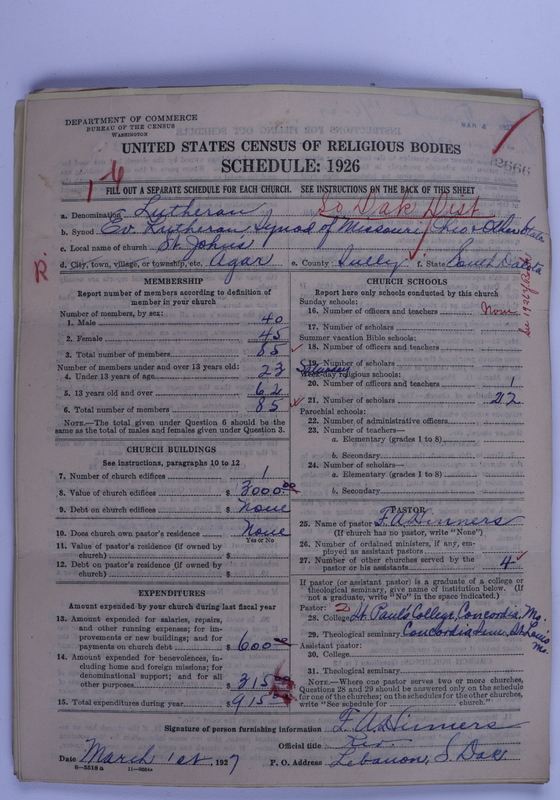 DEPARTMENT OF COMMERCE
BUREAU OF THE CENSUS
WASHINGTON
UNITED STATES CENSUS OF RELIGIOUS BODIES
SCHEDULE: 1926
FILL OUT A SEPARATE SCHEDULE FOR EACH CHURCH. SEE INSTRUCTIONS ON THE BACK OF THIS SHEET
So Dak Dist
a. Denomination Lutheran
b. Synod Ev. Lutheran Synod of Missouri, Ohio & Other States
c. Local name of church St. Johns
d. City, town, village, or township, etc. Agar e. County Sully f. State South Dakota
MEMBERSHIP
Report number of members according to definition of
member in your church
Number of members, by sex:
1. Male 40
2. Female 45
3. Total number of members 85
Number of members under and over 13 years old:
4. Under 13 years of age 23
5. 13 years old and over 62
6. Total number of members 85
NOTE.—The total given under Question 6 should be the
same as the total of males and females given under Question 3.
CHURCH BUILDINGS
See instructions, paragraphs 10 to 12
7. Number of church edifices 1
8. Value of church edifices $ 3000.00
9. Debt on church edifices $ None
10. Does church own pastor's residence None
Yes or No
11. Value of pastor's residence (if owned by
church) $
12. Debt on pastor's residence (if owned by
church) $
EXPENDITURES
Amount expended by your church during last fiscal year
13. Amount expended for salaries, repairs,
and other running expenses; for im-
provements or new buildings; and for
payments on church debt $ 600.00
14. Amount expended for benevolences, in-
cluding home and foreign missions; for
denominational support; and for all
other purposes $ 315.00
15. Total expenditures during year $ 915.00
CHURCH SCHOOLS
Report here only schools conducted by this church
Sunday schools:
16. Number of officers and teachers None
17. Number of scholars
Summer vacation Bible schools:
18. Number of officers and teachers
19. Number of scholars
Saturday
Week-day religious schools:
20. Number of officers and teachers 1
21. Number of scholars 22
Parochial schools:
22. Number of administrative officers
23. Number of teachers—
a. Elementary (grades 1 to 8)
b. Secondary
24. Number of scholars—
a. Elementary (grades 1 to 8)
b. Secondary
PASTOR
25. Name of pastor F. A. Dinners
(If church has no pastor, write "None")
26. Number of ordained ministers, if any, em-
ployed as assistant pastors
27. Number of other churches served by the
pastor or his assistants 4
If pastor (or assistant pastor) is a graduate of a college or
theological seminary, give name of institution below. (If
not a graduate, write "No" in the space indicated.)
Pastor: 2
28. College St. Pauls College, Concordia, Mo.
29. Theological seminary Concordia Sem. St. Louis Mo.
Assistant pastor:
30. College
31. Theological seminary
NOTE.—Where one pastor serves two or more churches,
Questions 28 and 29 should be answered only on the schedule
for one of the churches; on the schedules for the other churches,
write "See schedule for church."
Signature of person furnishing information F. A. Dinners
Official title Rev.
Date March 1st, 1927 P. O. Address Lebanon, S. Dak